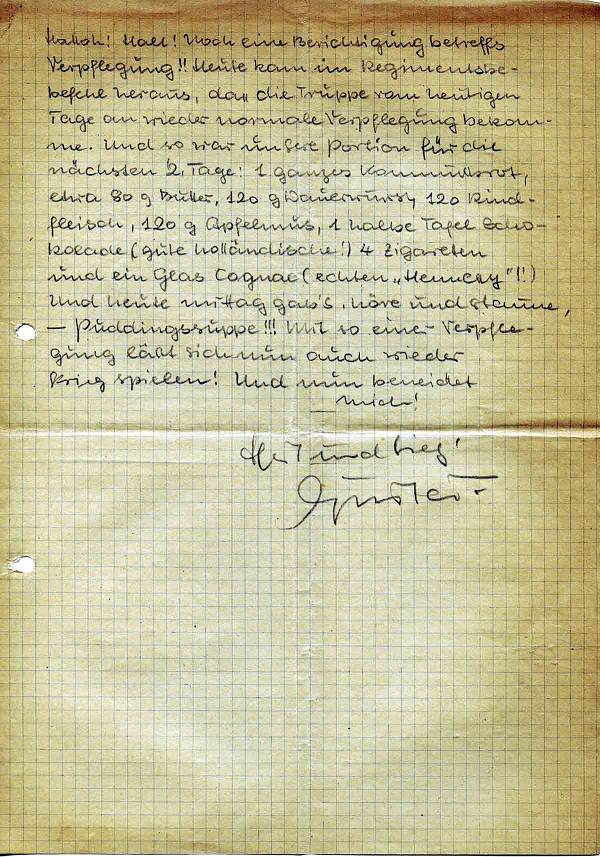 Halloh! Halt! Noch eine Berichtigung betreffs
Verpflegung!! Heute kam im Regimentsbe-
befehl heraus, daß die Truppe vom heutigen
Tage an wieder normale Verpflegung bekom-
me. Und so war unsere Portion für die
nächsten 2 Tage: 1 ganzes Kommissbrot,
etwa 80 g Butter, 120 g Dauerwurst, 120 Rind-
fleisch, 120 g Apfelmus, 1 halbe Tafel Scho-
kolade (gute holländische!) 4 Zigaretten
und ein Glas Cognac (echten „Hennesy"!!)
Und heute mittag gab's, höre und staune,
— Puddingsuppe!!! Mit so einer Verpfle-
gung läßt sich nun auch wieder
Krieg spielen! Und nun beneidet
mich!
Heil und Sieg!